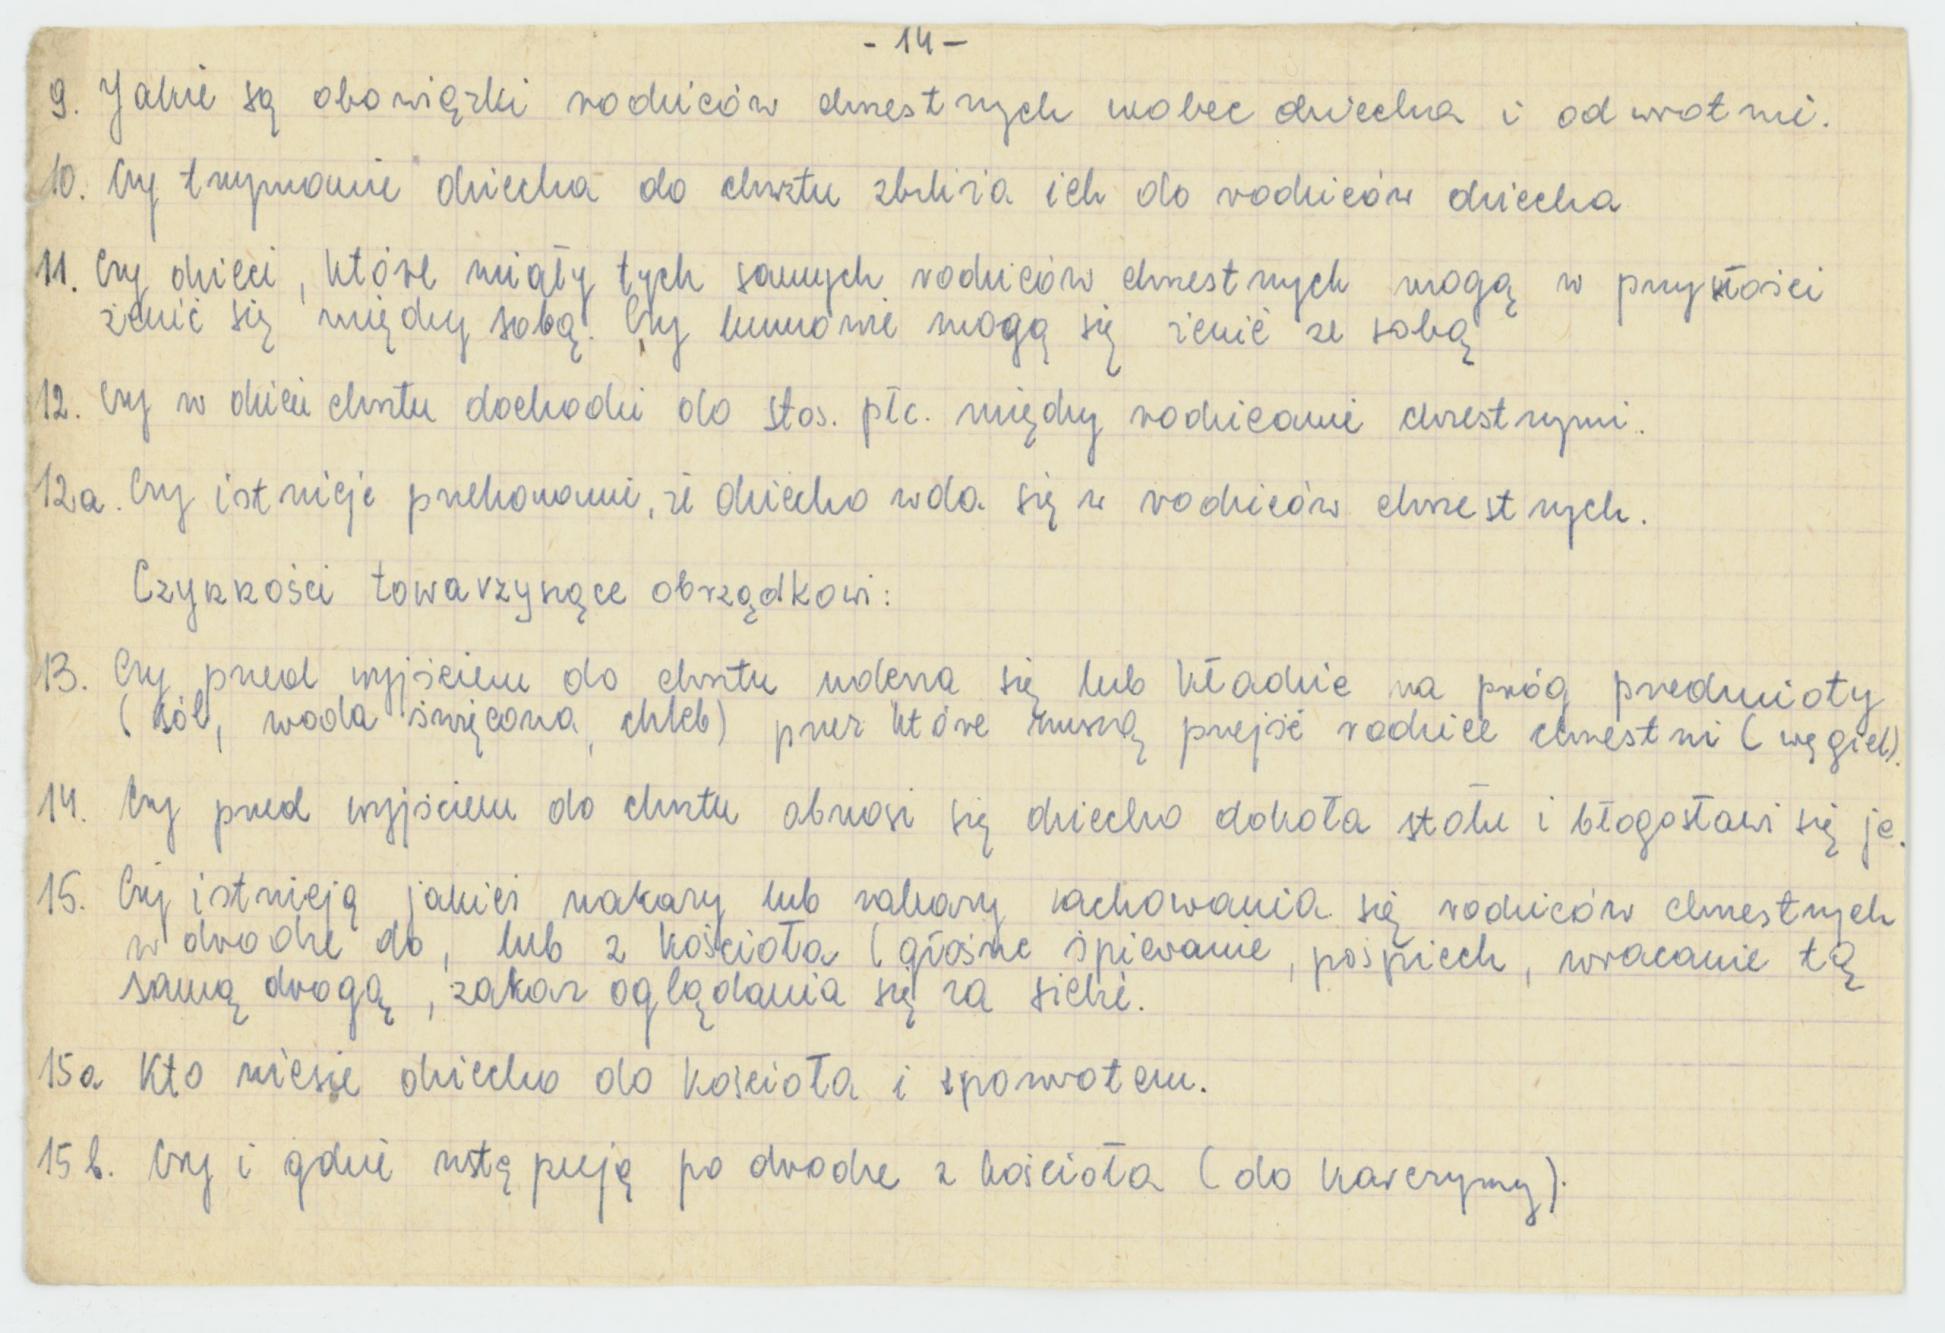 - 14 -
9. Jakie są obowiązki rodziców chrzestnych wobec dziecka i odwrotnie.
10. Czy trzymanie dziecka do chrztu zbliża ich do rodziców dziecka
11. Czy dzieci, które miały tych samych rodziców chrzestnych mogą w przyszłości
żenić się między sobą. Czy kumowie mogą się żenić ze sobą
12. Czy w dzień chrztu dochodzi do stos. płc. między rodzicami chrzestnymi.
12a. Czy istnieje przekonanie, że dziecko wda się w rodziców chrzestnych.
Czynności towarzyszące obrządkowi:
13. Czy przed wyjściem do chrztu uderza się lub kładzie na próg przedmioty
(sól, woda święcona, chleb) przez które muszą przejść rodzice chrzestni (węgiel).
14. Czy przed wyjściem do chrztu obnosi się dziecko dokoła stołu i błogosławi się je.
15. Czy istnieją jakieś nakazy lub zakazy zachowania się rodziców chrzestnych
w drodze do, lub z kościoła (głośne śpiewanie, pośpiech, wracanie tą
samą drogą, zakaz oglądania się za siebie.
15a Kto niesie dziecko do kościoła i spowrotem.
15b. Czy i gdzie wstępują po drodze z kościoła (do karczymy).